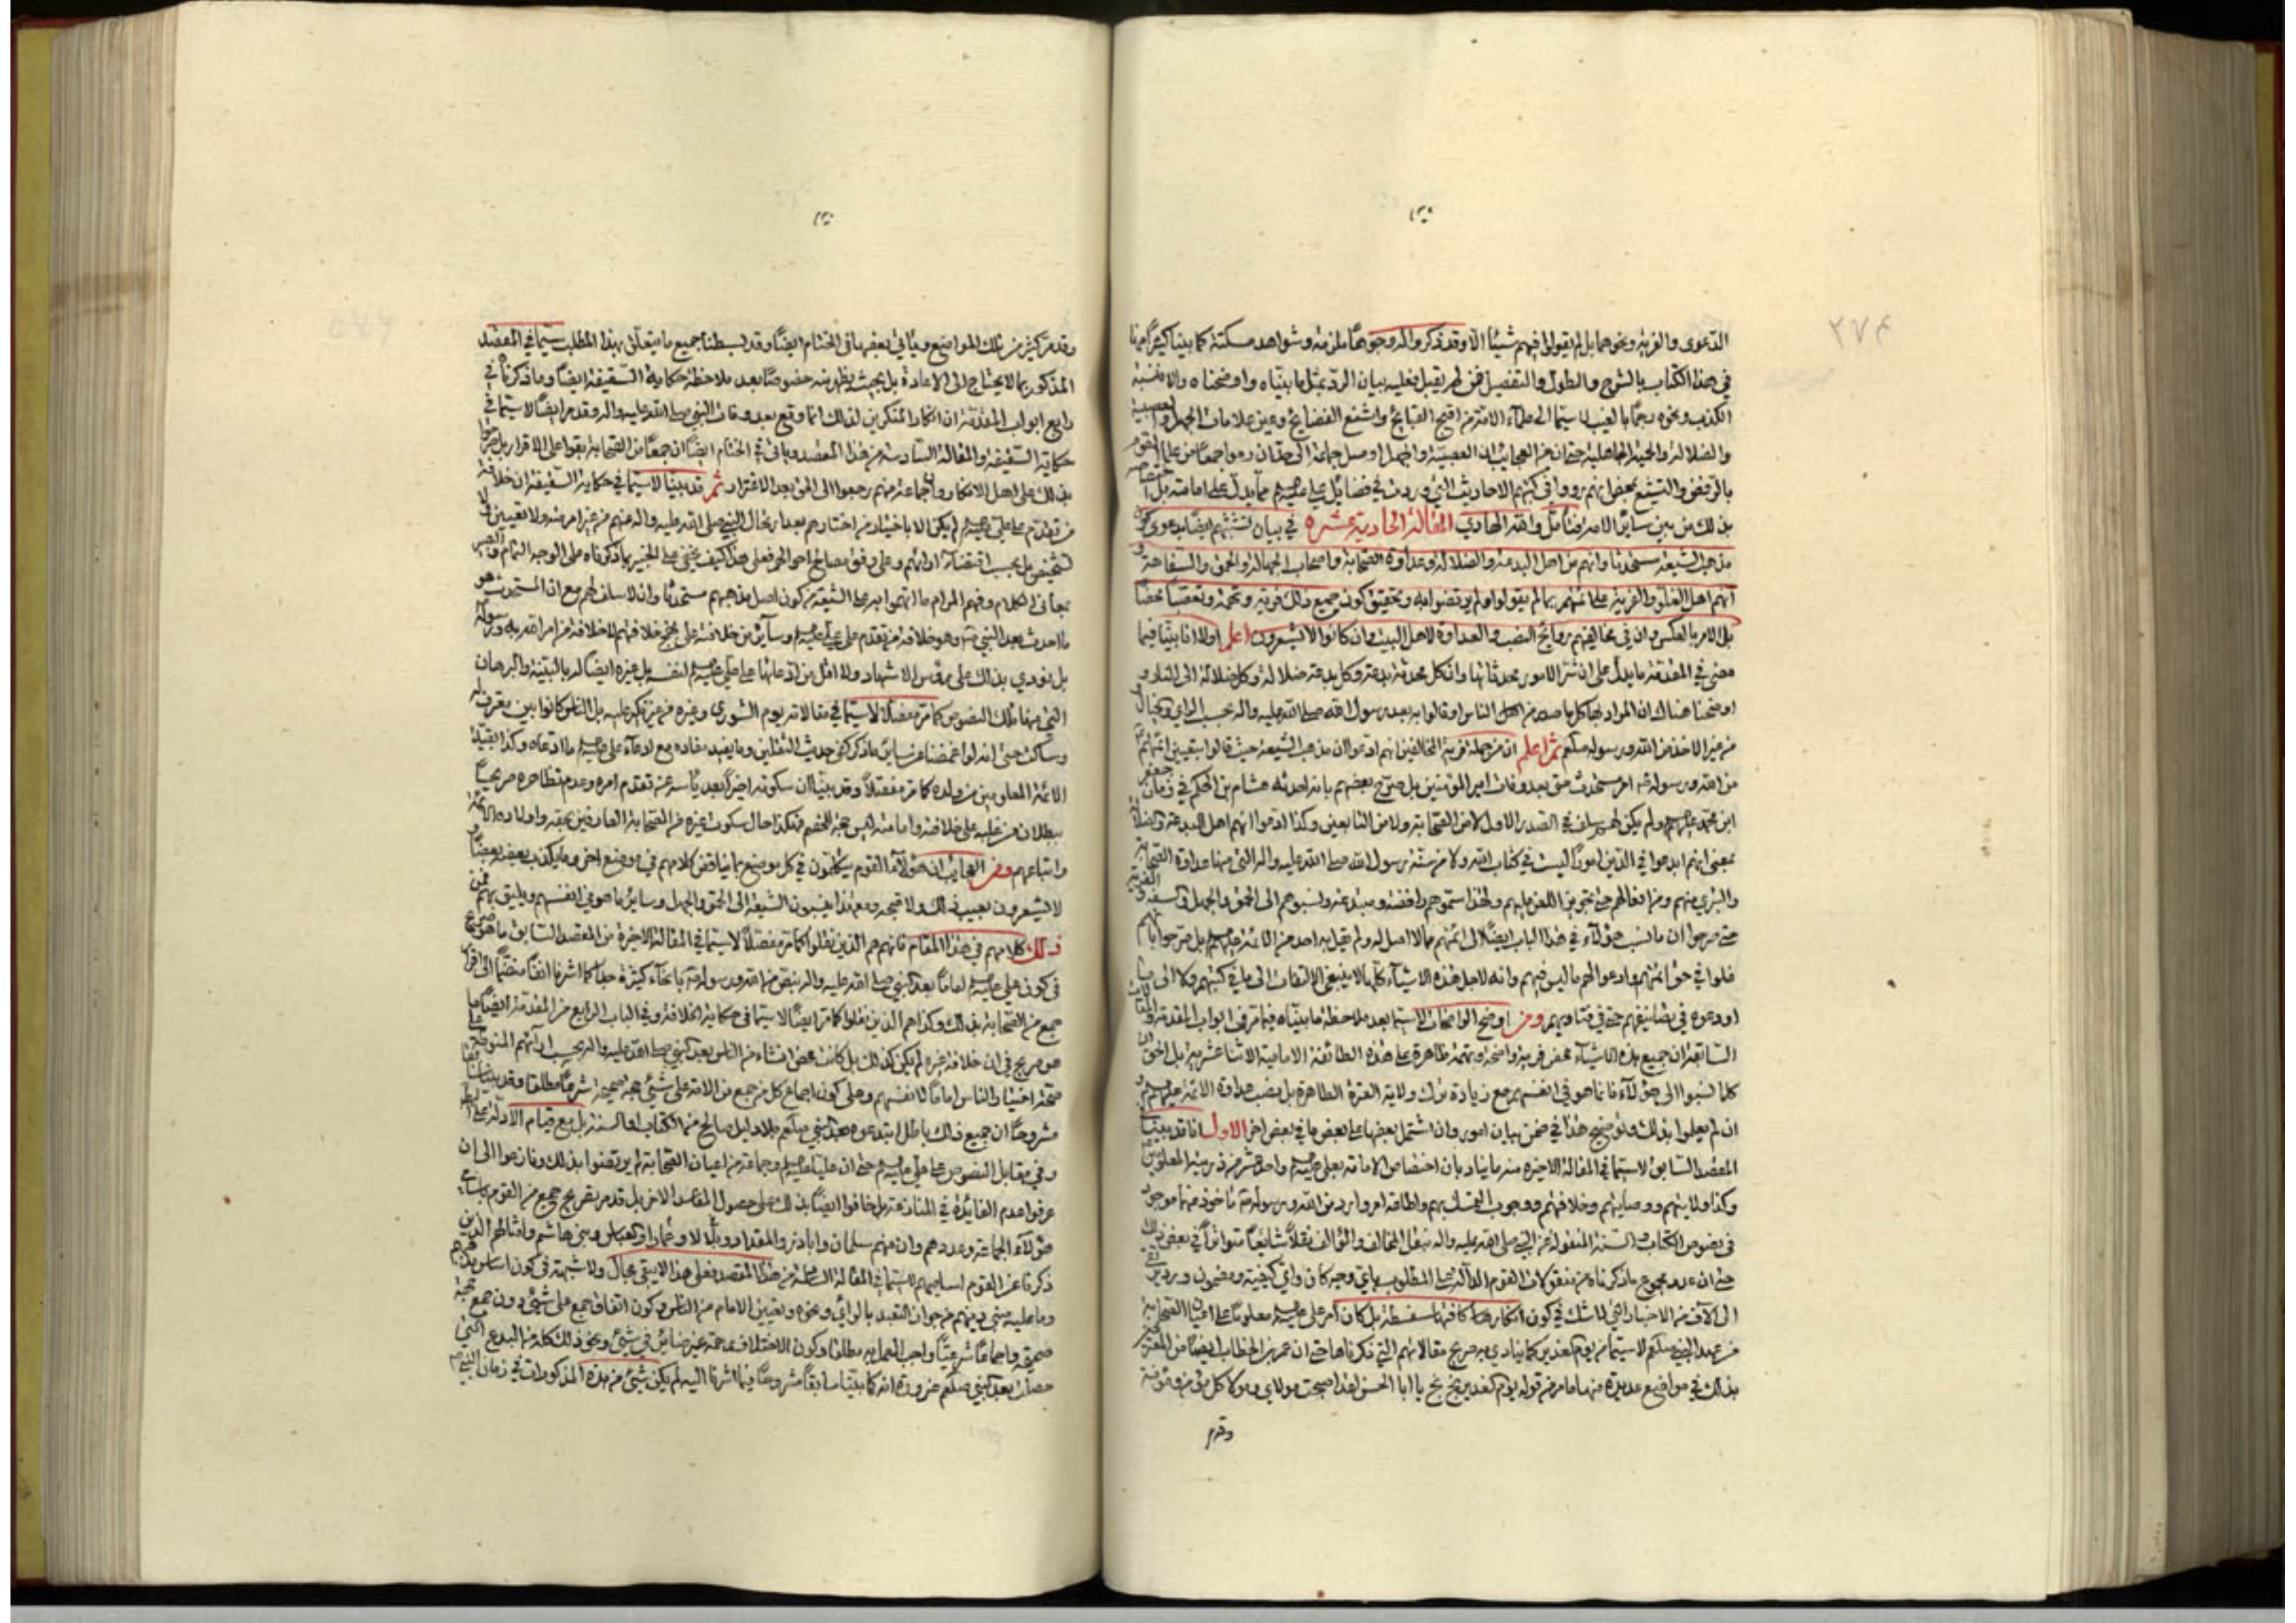 ۲۷۴
الدعوى والفرية ونحوهما بل لم يقولوا فيهم شيئا الا وقد ذكروا له وجوها ملزمة وشواهد مسكتة كما بينا كثيرا منها
في هذا الكتاب بالشرح والطول والتفصيل فمن لم يقبل فعليه بيان الرد بمثل ما بيناه واوضحناه والا فنسبة
الكذب ونحوه رجما بالغيب لا سيما الى علماء الامة من اقبح القبايح واشنع الفضايح وعين علامات الجهل والعصبية
والضلالة والحمية الجاهلية حتى ان من العجايب ان العصبية والجهل اوصل جماعة الى حد ان رموا جمعا من علماء القوم
بالرفض والتشيع بمحض انهم رووا في كتبهم الاحاديث التي وردت في فضايل علي عليه السلم مما يدل على امامته بل
بذلك من بين ساير الامة فتأمل والله الهادي المقالة الحادية عشرة في بيان تشبثهم ايضا بدعوى كون
مذهب الشيعة مستحدثا وانهم من اهل البدعة والضلالة وعداوة الصحابة واصحاب الجهالة والحمق والسفاهة و
انهم اهل الغلو والفرية على ائمتهم بما لم يقولوا ولم يرتضوا به وتحقيق كون جميع ذلك فرية وتهمة وتعصبا محضا
بل الامر بالعكس وان في مخالفيهم روائح النصب والعداوة لاهل البيت وان كانوا لا يشعرون اعلم اولا انا بينا فيما
مضى في المقدمة ما يدل على ان شر الامور محدثاتها وان كل محدثة بدعة وكل بدعة ضلالة وكل ضلالة الى النار و
اوضحنا هناك ان المراد بها كل ما صدر من اهل الناس او قالوا به بعد رسول الله صلى الله عليه واله بحسب الراي والخيال
من غير الاخذ من الله ورسوله صلعم ثم اعلم ان من جملة فرية المخالفين انهم ادعوا ان مذهب الشيعة حيث قالوا بتعيين ائمتهم
من الله ورسوله امر مستحدث حتى بعد وفات امير المؤمنين بل صرح بعضهم بانه احدثه هشام بن الحكم في زمان جعفر
ابن محمد عليهم السلم ولم يكن لهم سلف في الصدر الاول لا من الصحابة ولا من التابعين وكذا ادعوا انهم اهل البدعة والضلالة
بمعنى انهم ابدعوا في الدين امورا ليست في كتاب الله ولا من سنة رسول الله صلى الله عليه واله التي منها عداوة الصحابة
والتبري منهم ومن افعالهم حتى تجويز اللعن عليهم ولهذا سموهم رافضة ومبتدعة ونسبوهم الى الحمق والجهل والسفه و
حتى صرحوا ان ما نسب هؤلاء في هذا الباب ايضا الى ائمتهم مما لا اصل له ولم يقل به احد من الائمة عليهم السلم بل صرحوا بانهم
غلوا في حق ائمتهم وادعوا لهم ما ليس فيهم وانه لاجل هذه الاشياء كلها لا ينبغي الالتفات الى ما في كتبهم ولا الى ما
اودعوه في تصانيفهم حتى في فتاويهم ومن اوضح الواضحات لا سيما بعد ملاحظة ما بيناه فيما مر في ابواب المقدمة والمقالات
السابقة ان جميع هذه الاشياء محض فرية واضحة وتهمة ظاهرة على هذه الطائفة الامامية الاثنا عشرية بل الحق ان
كلما نسبوا الى هؤلاء فانما هو في انفسهم مع زيادة ترك ولاية العترة الطاهرة بل نصب عداوة الائمة عليهم السلم و
ان لم يعلموا بذلك ولنوضح هذا في ضمن بيان امور وان اشتمل بعضها على بعض ما في بعض اخر الاول انا قد بينا
المقصد السابق لا سيما في المقالة الاخيرة منه ما ينادي بان اختصاص الامامة بعلي عليه السلم واحد عشر من ذريته المعلومين
وكذا ولايتهم ووصايتهم وخلافتهم ووجوب التمسك بهم واطاقة امر وارد من الله ورسوله ماخوذ منهما موجود
في نصوص الكتاب والسنة المنقولة عن النبي صلى الله عليه واله بنقل المخالف والمؤالف نقلا شايعا متواترا في بعض ذلك
حتى ان عدد مجموع ما ذكرناه من منقولات القوم الدالة على المطلوب باي وجه كان واي كيفية ومضمون ورد يرتقي
الى الاف من الاخبار التي لا شك في كون انكارها كافيا سفسطة بل كان امر علي عليه السلم معلوما على اعيان الصحابة
من عهد النبي صلعم لا سيما من يوم الغدير كما ينادي به صريح مقالاتهم التي ذكرناها حتى ان عمر بن الخطاب ايضا من المعترفين
بذلك في مواضع عديدة منها ما مر من قوله يوم الغدير بخ بخ يا ابا الحسن لقد اصبحت مولاي ومولا كل مؤمن ومؤمنة
وقد مر
وقد مر كثير من تلك المواضع وياتي بعضها في الختام ايضا وقد بسطنا جميع ما يتعلق بهذا المطلب سيما في المقصد
المذكور بما لا يحتاج الى الاعادة بل بحيث يظهر منه خصوصا بعد ملاحظة حكاية السقيفة ايضا وما ذكرناه في
رابع ابواب المقدمة ان انكار المنكرين لذلك انما وقع بعد وفات النبي صلى الله عليه واله وقد مر ايضا لا سيما في
حكاية السقيفة والمقالة السادسة من هذا المقصد وياتي في الختام ايضا ان جمعا من الصحابة بقوا على الاقرار بل صرحوا
بذلك على اهل الانكار وان جماعة منهم رجعوا الى الحق بعد الاغترار ثم قد بينا لا سيما في حكاية السقيفة ان خلافة
من تقدم على علي عليه السلم لم يكن الا باختيار من اختارهم بعد ارتحال النبي صلى الله عليه واله عنهم من غير امر منه ولا تعيين
لشخص بل بحسب اقتضاء ارائهم وعلى وفق مصالح احوالهم فعلى هذا كيف يخفى على الخبير بما ذكرناه على الوجه التمام والبصير
بمعاني الكلام وفهم المرام ما اتهموا به على الشيعة من كون اصل مذهبهم مستحدثا وان لا سلف لهم مع ان المستحدث هو
ما احدث بعد النبي وهو خلافة من تقدم على علي عليه السلم وساير من خلافته على نهج خلافتهم لا خلافة من امر الله به ورسوله
بل نودي بذلك على رؤس الاشهاد ولا اقل من ادعائها على علي عليه السلم لنفسه بل غيره ايضا له بالبينة والبرهان
التي منها تلك النصوص كما مر مفصلا لا سيما في مقالاته يوم الشورى وغيره من غير نكير عليه بل الناس كانوا بين معترف
وساكت حتى انه لو اغمضنا عن ساير ما ذكر كفى حديث الثقلين وما يفيد مفاده مع ادعاء علي عليه السلم ما ادعاه وكذا بقية
الائمة المعلومين من ولده كما مر مفصلا وقد بينا ان سكوته اخيرا بعد ياسه عن تقدم امره وعدم تظاهره صريحا
ببطلان من غلبه على خلافته وامامته ليس حجة للخصم فهكذا حال سكوت غيره من الصحابة العارفين بحقه واولاده الائمة
واتباعهم ومن العجايب ان هؤلاء القوم يتكلمون في كل موضع بما يناقض كلامهم في موضع اخر وما يكذب بعضه بعضا و
لا يشعرون بعيب ذلك ولا قبحه ومع هذا ينسبون الشيعة الى الحمق والجهل وساير ما هو في انفسهم ويليق بهم فمن
ذلك كلامهم في هذا المقام فانهم هم الذين نقلوا كما مر مفصلا لا سيما في المقالة الاخيرة من المقصد السابق ما هو صريح
في كون علي عليه السلم اماما بعد النبي صلى الله عليه واله بنص من الله ورسوله بانحاء كثيرة جدا كما اشرنا انفا منضما الى اقرار
جمع من الصحابة بذلك وكذا هم الذين نقلوا كما مر ايضا لا سيما في حكاية الخلافة وفي الباب الرابع من المقدمة ايضا ما
هو صريح في ان خلافة غيره لم يكن كذلك بل كانت محض انشاء من الناس بعد النبي صلى الله عليه واله بحسب ارائهم
صحة اختيار الناس اماما لانفسهم وعلى كون اجماع كل من جمع من الامة على شيء حجة صحيحة شرعا مطلقا وقد بينا
مشروحا ان جميع ذلك باطل ابتدعوه بعد النبي صلعم بلا دليل صالح من الكتاب والسنة بل مع قيام الادلة على
وفي مقابل النصوص على علي عليه السلم حتى ان عليا عليه السلم وجماعة من اعيان الصحابة لم يرتضوا بذلك ونازعوا الى ان
عرفوا عدم الفايدة في المنازعة بل خافوا ايضا بذلك على حصول المفاسد الاخر بل قد مر تصريح جمع من القوم باسماء
هؤلاء الجماعة وعددهم وان منهم سلمان وابا ذر والمقداد وبلالا وعمارا والعباس وبني هاشم وامثالهم الذين
ذكرنا عن القوم اساميهم لا سيما في المقالة السادسة من هذا المقصد فعلى هذا لا يبقى مجال ولا شبهة في كون اساس مذهبهم
وما عليه مبنى دينهم من جواز التعبد بالراي ونحوه وتعيين الامام من الناس وكون اتفاق جمع على شيء دون جمع حجة
صحيحة واجماعا شرعيا واجب العمل به مطلقا وكون الاختلاف رحمة غير ضاير في شيء ونحو ذلك كله من البدع التي
حصلت بعد النبي صلعم ضرورة انه كما بينا سابقا مشروحا وفيما اشرنا اليه لم يكن شيء من هذه المذكورات في زمان النبي